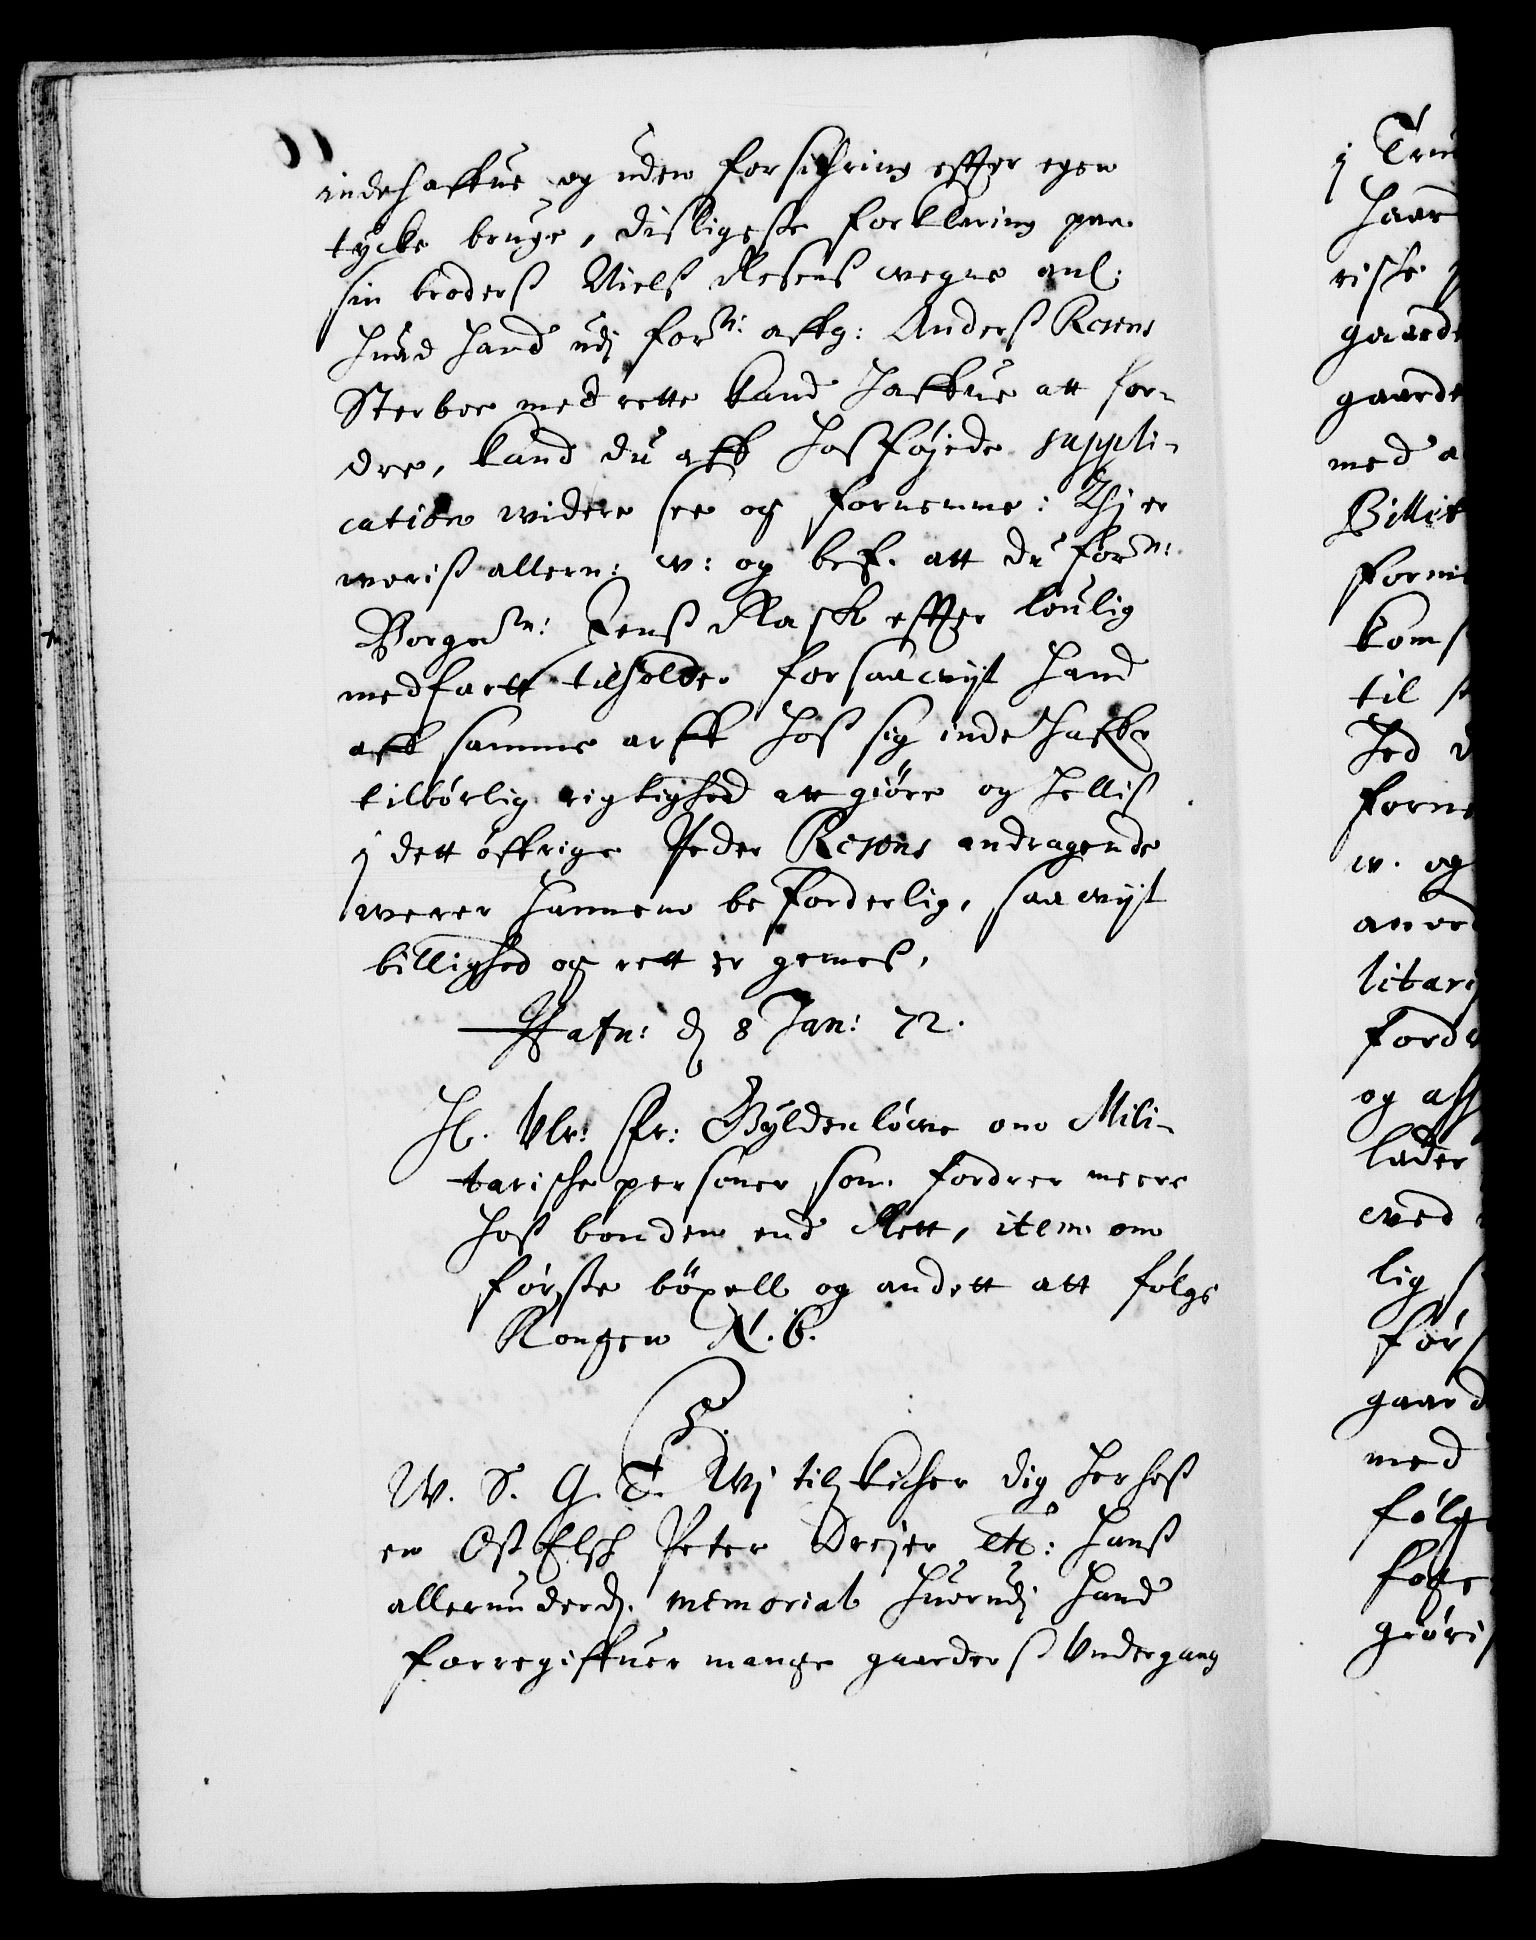 indehaffue og uden forsichring effter egen
tycke bruge, disligeste forklaring paa
sin broders Niels Resens wegne anl:
huad hand udj forn: affg: Anders Resens
Sterboe med rette kand haffue att for-
dre, kand du aff hosføjede suppli-
cation widere see og fornemme: Thj er
woris allern: w: og bef. att du forn:
Borgem: Jens Rask effter loulig
medfartt tilholder forsaawijt hand
aff samme arff hos sig inde haffr
tilbørlig rigtighed att giöre og hellis
j dett öffrige Peder Resens andragende
werer hannem beforderlig, saawijt
billighed og rett er gemes,
Hafn: dj 8 Jan: 72.
H. Vlr: Fr: Gyldenløwe om Mili-
tarische personer som fordrer meere
hos bonden end Rett, item om
första böxell og andett att følge
Kongen N. B.
C5.
W. S. G. T. Wj tilskicher dig herhos
en Peter Dreyer etc: hans
allerunderdj. memorial huorudj hand
forregiffuer mange gaarders Undergang
j Tru
haar
rische
gaarde
gaarde
med a
Billit
forni
koms
til
hed
forne
w. og
anord
litari
fordr
og aff
lader
wed
lig
førs
gaard
med
følg
foge
giöris